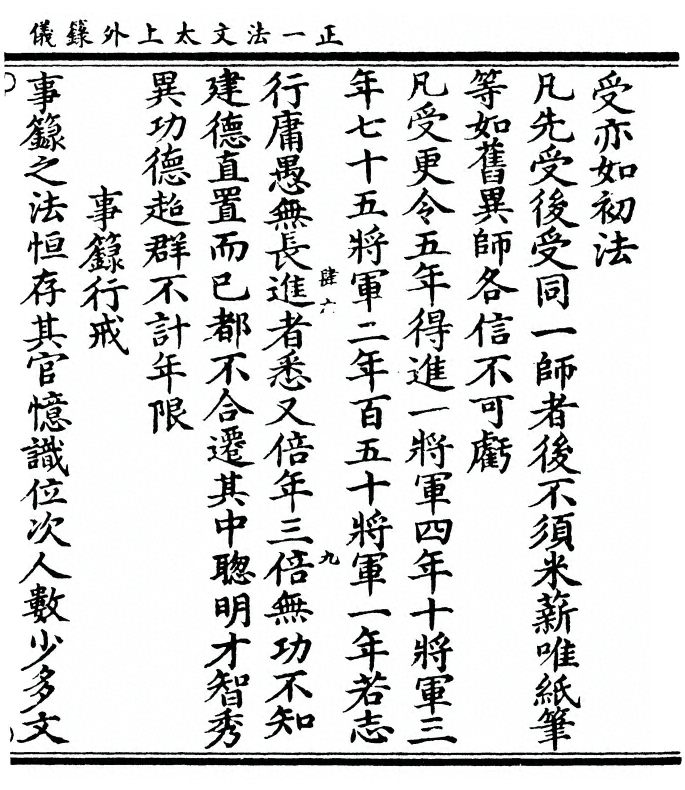 正一法文太上外籙儀
受亦如初法
凡先受後受同一師者後不須米薪唯紙筆
等如舊異師各信不可虧
凡受更令五年得進一將軍四年十將軍三
年七十五將軍二年百五十將軍一年若志
行庸愚無長進者悉又倍年三倍無功不知
肆六
九
建德直置而已都不合遷其中聰明才智秀
異功德超群不計年限
事籙行戒
事籙之法恒存其官憶識位次人數少多文